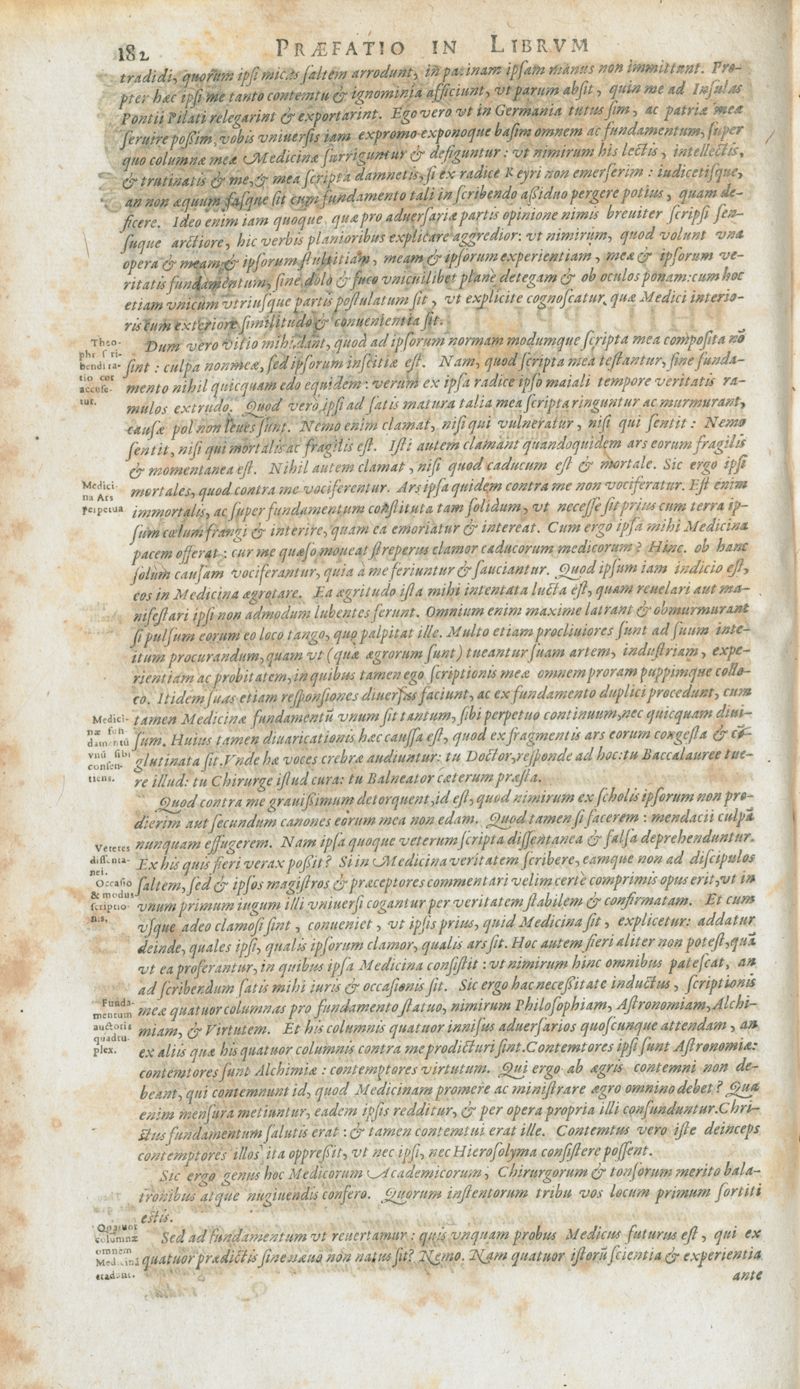 182 PRÆFATIO IN LIBRVM
tradidi, quorum ipsi micas saltem arrodunt, in patinam ipsam manus non immittunt. Pro-
pter hæc ipsi me tanto contemtu & ignominia afficiunt, vt parum absit, quin me ad Insulas
Pontii Pilati relegarint & exportarint. Ego vero vt in Germania tutus sim, ac patriæ meæ
seruire poßim, vobis vniuersis iam expromo exponoque basim omnem ac fundamentum, super
quo columnæ meæ Medicinæ surriguntur & defiguntur: vt nimirum his lectis, intellectis,
& trutinatis & me, & mea scripta damnetis, si ex radice Reyri non emerserim: iudicetisque,
an non æquum fasque sit cum fundamento tali in scribendo aßiduo pergere potius, quam de-
ficere. Ideo enim iam quoque quæ pro aduersariæ partis opinione nimis breuiter scripsi sen-
suque arctiore, hic verbis planioribus explicare aggredior: vt nimirum, quod volunt vna
opera & meam & ipsorum stultitiam, meam & ipsorum experientiam, meæ & ipsorum ve-
ritatis fundamentum, sine dolo & fuco vnicuilibet plane detegam & ob oculos ponam: cum hoc
etiam vnicum vtriusque partis postulatum sit, vt explicite cognoscatur, quæ Medici interio-
ris cum exteriore similitudo & conuenientia sit.
Theo-
phr. scri-
bendi ra-
tio cur
accuse-
tur.
Dum vero vitio mihi dant, quod ad ipsorum normam modumque scripta mea composita nō
sint: culpa non mea, sed ipsorum inscitia est. Nam, quod scripta mea testantur, sine funda-
mento nihil quicquam edo equidem: verum ex ipsa radice ipso maiali tempore veritatis ra-
mulos extrudo. Quod vero ipsi ad satis matura talia mea scripta ringuntur ac murmurant,
causæ pol non leues sunt. Nemo enim clamat, nisi qui vulneratur, nisi qui sentit: Nemo
sentit, nisi qui mortalis ac fragilis est. Isti autem clamant quandoquidem ars eorum fragilis
& momentanea est. Nihil autem clamat, nisi quod caducum est & mortale. Sic ergo ipsi
Medici-
na Ars
perpetua
mortales, quod contra me vociferentur. Ars ipsa quidem contra me non vociferatur. Est enim
immortalis, ac super fundamentum constituta tam solidum, vt necesse sit prius cum terra ip-
sum cœlum frangi & interire, quam ea emoriatur & intereat. Cum ergo ipsa mihi Medicina
pacem offerat: cur me quæso moueat streperus clamor caducorum medicorum? Hinc. ob hanc
solum causam vociferantur, quia à me feriuntur & sauciantur. Quod ipsum iam indicio est,
eos in Medicina ægrotare. Ea ægritudo ista mihi intentata lucta est, quam reuelari aut ma-
nifestari ipsi non admodum lubentes ferunt. Omnium enim maxime latrant & obmurmurant
si pulsum eorum eo loco tango, quo palpitat ille. Multo etiam procliuiores sunt ad suum inte-
itum procurandum, quam vt (quæ ægrorum sunt) tueantur suam artem, industriam, expe-
rientiam ac probitatem, in quibus tamen ego scriptionis meæ omnem proram puppimque collo-
co. Itidem suas etiam responsiones diuersas faciunt, ac ex fundamento duplici procedunt, cum
Medici-
næ fun-
damentū
vnū sibi
consen-
tiens.
tamen Medicinæ fundamentū vnum sit tantum, sibi perpetuo continuum, nec quicquam diui-
sum. Huius tamen diuaricationis hæc caussa est, quod ex fragmentis ars eorum congesta & cō-
glutinata sit. Vnde hæ voces crebræ audiuntur: tu Doctor, responde ad hoc: tu Baccalauree tue-
re illud: tu Chirurge istud cura: tu Balneator cæterum præsta.
Quod contra me grauißimum detorquent, id est, quod nimirum ex scholis ipsorum non pro-
dierim aut secundum canones eorum mea non edam. Quod tamen si facerem: mendacii culpā
Veteres
dissenta-
nei.
Occasio
& modus
scriptio-
nis.
nunquam effugerem. Nam ipsa quoque veterum scripta dissentanea & falsa deprehenduntur.
Ex his quis fieri verax poßit? Si in Medicina veritatem scribere, eamque non ad discipulos
saltem, sed & ipsos magistros & præceptores commentari velim certe comprimis opus erit, vt in
vnum primum iugum illi vniuersi cogantur per veritatem stabilem & confirmatam. Et cum
vsque adeo clamosi sint, conueniet, vt ipsis prius, quid Medicina sit, explicetur: addatur
deinde, quales ipsi, qualis ipsorum clamor, qualis ars sit. Hoc autem fieri aliter non potest, quā
vt ea proferantur, in quibus ipsa Medicina consistit: vt nimirum hinc omnibus patescat, an
ad scribendum satis mihi iuris & occasionis sit. Sic ergo hac neceßitate inductus, scriptionis
Funda-
mentum
auctoris
quadru-
plex.
meæ quatuor columnas pro fundamento statuo, nimirum Philosophiam, Astronomiam, Alchi-
miam, & Virtutem. Et his columnis quatuor innisus aduersarios quoscunque attendam, an
ex aliis quæ his quatuor columnis contra me prodicturi sint. Contemtores ipsi sunt Astronomiæ:
contemtores sunt Alchimiæ: contemptores virtutum. Qui ergo ab ægris contemni non de-
beant, qui contemnunt id, quod Medicinam promere ac ministrare ægro omnino debet? Qua
enim mensura metiuntur, eadem ipsis redditur, & per opera propria illi confunduntur. Chri-
stus fundamentum salutis erat: & tamen contemtui erat ille. Contemtus vero iste deinceps
contemptores illos ita oppreßit, vt nec ipsi, nec Hierosolyma consistere possent.
Sic ergo genus hoc Medicorum Academicorum, Chirurgorum & tonsorum merito bala-
tronibus atque nugiuendis confero. Quorum instentorum tribu vos locum primum sortiti
estis.
Quatuor
columnæ
omnem
Medicinā
tradunt.
Sed ad fundamentum vt reuertamur: quis vnquam probus Medicus futurus est, qui ex
quatuor prædictis sine næuo non natus sit? Nemo. Nam quatuor istorū scientia & experientia
ante